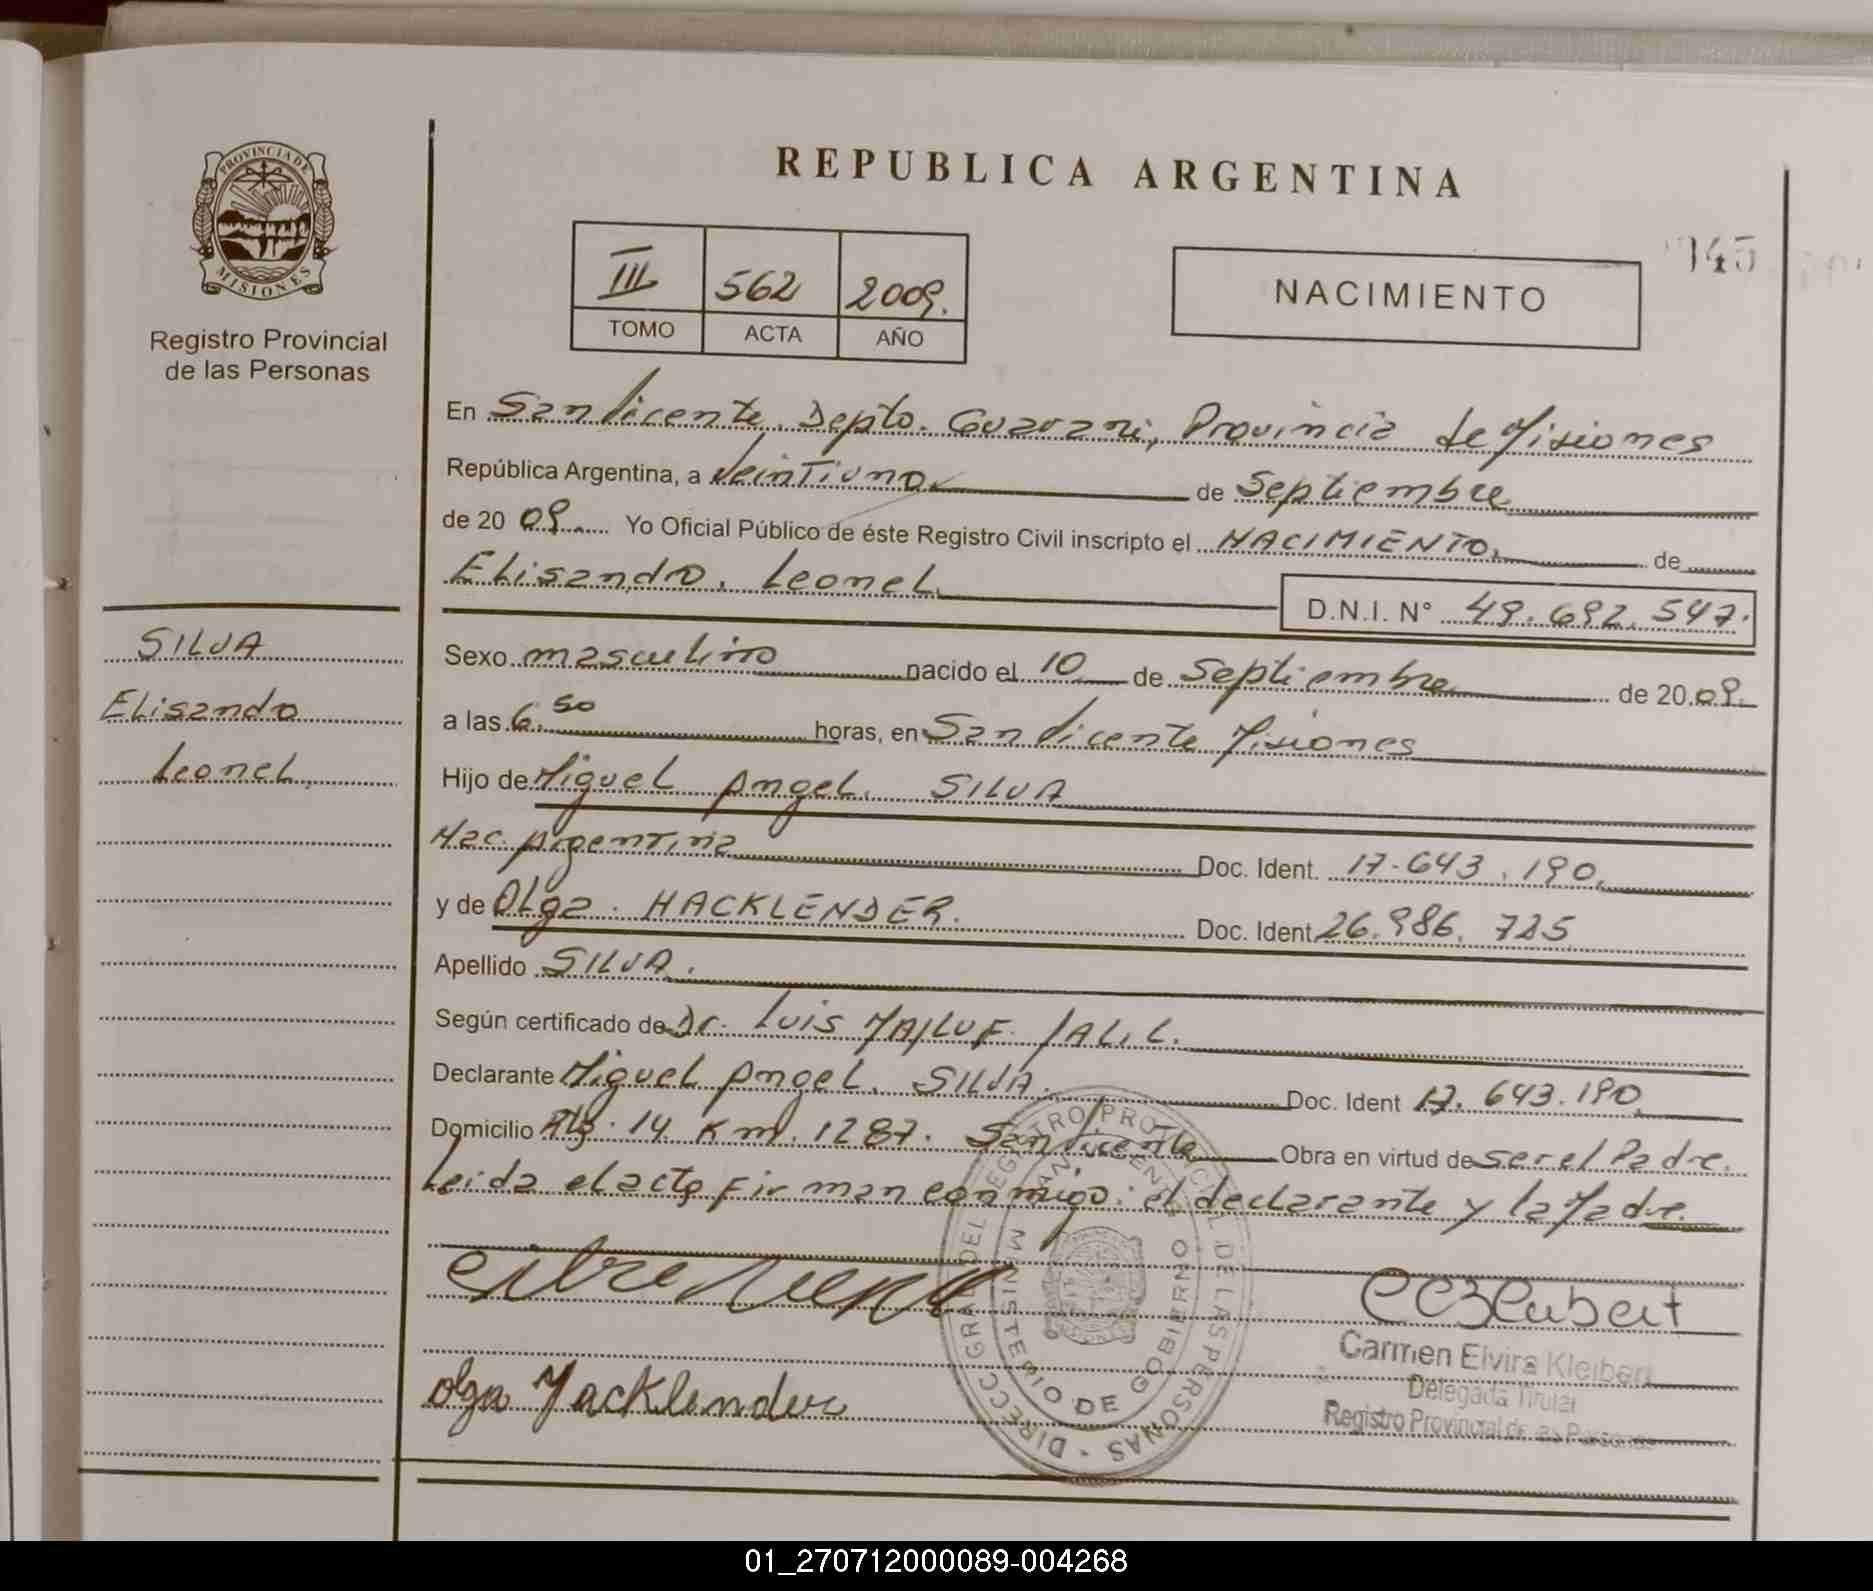 REPUBLICA ARGENTINA
PROVINCIA DE
MISIONES
Registro Provincial
de las Personas
III 562 2009.
TOMO ACTA AÑO
NACIMIENTO
145
En San Vicente, Depto. Guarani, Provincia de Misiones
República Argentina, a Veintiuno de Septiembre
de 20 09. Yo Oficial Público de éste Registro Civil inscripto el NACIMIENTO. de
Elisando, Leonel.
D.N.I. N° 49.692.547.
SILVA
Elisando
Leonel.
Sexo masculino nacido el 10 de Septiembre de 20 09.
a las 6.50 horas, en San Vicente Misiones
Hijo de Miguel Angel. SILVA
Nac. Argentina Doc. Ident. 17.643.190.
y de Olga. HACKLENDER. Doc. Ident 26.986.725
Apellido SILVA.
Según certificado de Dr. Luis MAJLUF JALIL.
Declarante Miguel Angel. SILVA. Doc. Ident 17.643.190.
Domicilio Km. 1287. San Vicente Obra en virtud de ser el Padre.
Leida el acta firman conmigo: el declarante y la Madre.
olga Hacklender
DIRECC GRAL DEL REGISTRO PROVINCIAL DE LAS PERSONAS
MINISTERIO DE GOBIERNO
Carmen Elvira Kleibert
Delegada Titular
Registro Provincial de las Personas
01_270712000089-004268